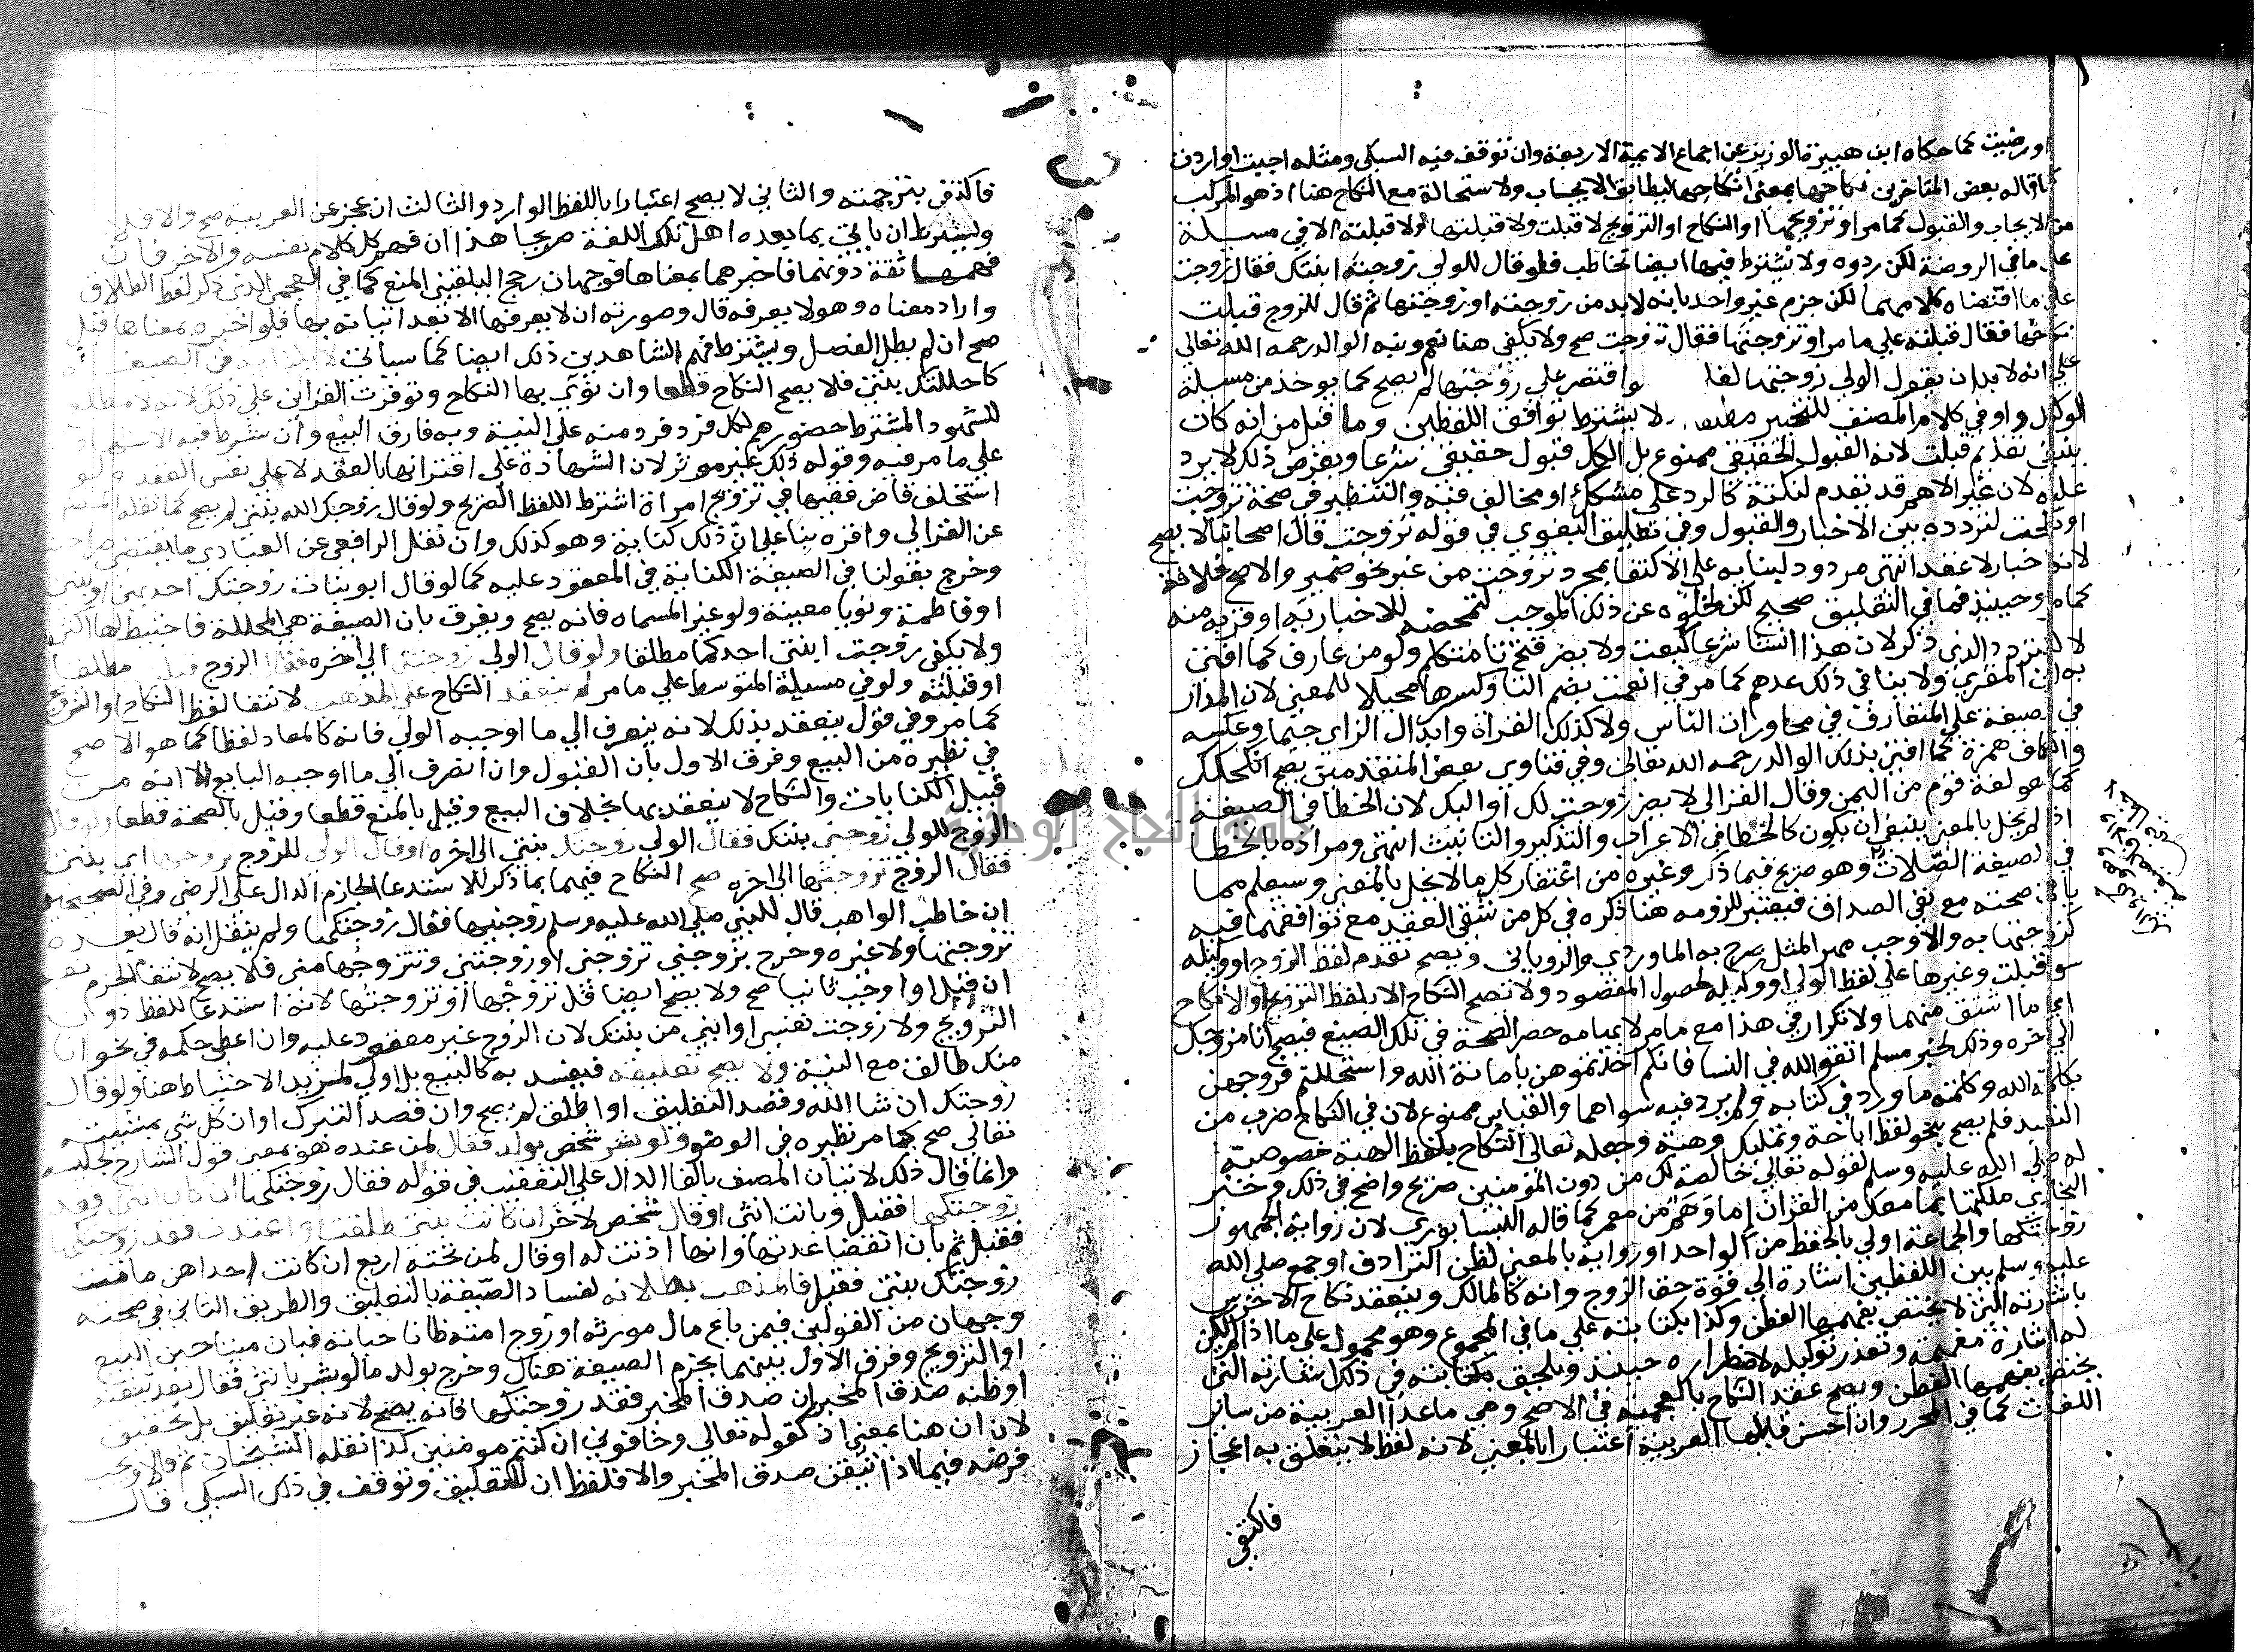 او رضيت كما حكاه ابن هبيرة الوزير عن اجماع الايمة الاربعة وان توقف فيه السبكي ومثله احببت او اردت
كما قاله بعض المتاخرين نكاحها بمعني انكاحها ليطابق الايجاب ولاستحالة مع النكاح هنا اذ هو المركب
من الايجاب والقبول كما مر او تزويجها او النكاح او التزويج لا قبلت ولا قبلتها ولا قبلته الا في مسيلة
علي ما في الروضة لكن ردوه ولا يشترط فيها ايضا تخاطب فلو قال للولي زوجته ابنتك فقال زوجت
علي ما اقتضاه كلامهما لكن جزم غير واحد بانه لابد من زوجته او زوجتها ثم قال للزوج قبلت
نكاحها فقال قبلته علي ما مر او تزوجتها فقال تزوجت صح ولا يكفي هنا نعم ونبه الوالد رحمه الله تعالي
علي انه لابد ان يقول الولي زوجتها لفلان واقتصر علي زوجتها لم يصح كما يوخذ من مسيلة
الوكيل واو في كلام المصنف للتخيير مطلقا لا يشترط توافق اللفظين وما قيل من انه كان
ينبغي تقديم قبلت لانه القبول الحقيقي ممنوع بل الكل قبول حقيقي شرعا وبفرض ذلك لا يرد
عليه لان غير الاهم قد يقدم لنكتة كالرد علي مشكك او مخالف فيه والتنظير في صحة تزوجت
او نكحت لتردده بين الاخبار والقبول وفي تعليق البغوي في قوله تزوجت قال اصحابنا لا يصح
لانه اخبار لا عقد انتهي مردود لينا به علي الاكتفا بمجرد تزوجت من غير نحو ضمير والاصح خلافه
كما مر وحينيذ فما في التعليق صحيح لكن لخلوه عن ذلك الموجب لتمحضه للاخبارية او قربه منه
لا للتردد الذي ذكر لان هذا انشا شرعا كبعت ولا يضر فتح تا متكلم ولو من عارف كما افتي
به ابن المقري ولا ينافي ذلك عدهم كما مر في انعمت بضم التا وكسرها مخيلا للمعني لان المدار
في الصيغة علي المتعارف في محاورات الناس ولا كذلك القراة وابدال الزاي جيما وعكسه
والكاف همزة كما افتي بذلك الوالد رحمه الله تعالي وفي فتاوي بعض المتقدمين يصح انكحلك
كما هو لغة قوم من اليمن وقال الغزالي لا يضر زوجت لك او اليك لان الخطا في الصيغة
اذا لم يخل بالمعني ينبغي ان يكون كالخطا في الاعراب والتذكير والتانيث انتهي ومراده بالخطا
في الصيغة الصلات وهو صريح فيما ذكر وغيره من اغتفار كل ما لا يخل بالمعني وسيعلم مما
ياتي صحته مع نفي الصداق فيعتبر للزومه هنا ذكره في كل من شقي العقد مع توافقهما فيه
كزوجتها به والا وجب مهر المثل صرح به الماوردي والروياني ويصح تقدم لفظ الزوج او وكيله
سوا قبلت وغيرها علي لفظ الولي او وكيله لحصول المقصود ولا يصح النكاح الا بلفظ التزويج او الانكاح
اي ما اشتق منهما ولا تكرار في هذا مع ما مر لايهامه حصر الصحة في تلك الصيغ فيصح انا مزوجك
الي اخره وذلك لخبر مسلم اتقوا الله في النسا فانكم اخذتموهن بامانة الله واستحللتم فروجهن
بكلمة الله وكلمته ما ورد في كتابه ولم يرد فيه سواهما والقياس ممنوع لان في النكاح ضرب من
التعبد فلم يصح بنحو لفظ اباحة وتمليك وهبة وجعله تعالي النكاح بلفظ الهبة خصوصية
له صلي الله عليه وسلم لقوله تعالي خالصة لك من دون المؤمنين صريح واضح في ذلك وخبر
البخاري ملكتها بما معك من القران اما وهم من معمر كما قاله النيسابوري لان رواية الجمهور
زوجتكها والجماعة اولي بالحفظ من الواحد او رواية بالمعني لظن الترادف او جمع صلي الله
عليه وسلم بين اللفظين اشارة الي قوة حق الزوج وانه كالمالك وينعقد نكاح الاخرس
باشارته التي لا يختص بفهمها الفطن وكذا بكتابته علي ما في المجموع وهو محمول علي ما اذا لم يكن
له اشارة مفهمة وتعذر توكيله لاضطراره حينيذ ويلحق بكتابته في ذلك اشارته التي
يختص بفهمها الفطن ويصح عقد النكاح بالعجمية في الاصح وهي ما عدا العربية من ساير
اللغات كما في المحرر وان احسن قايلها العربية اعتبارا بالمعني لانه لفظ لا يتعلق به اعجاز
فاكتفي
فاكتفي بترجمته والثاني لا يصح اعتبارا باللفظ الوارد والثالث ان عجز عن العربية صح والا فلا
ويشترط ان ياتي بما يعده اهل تلك اللغة صريحا هذا ان فهم كل كلام نفسه والاخر فان
فهمها ثقة دونهما فاخبرهما بمعناها فوجهان رجح البلقيني المنع كما في العجمي الذي ذكر لفظ الطلاق
واراد معناه وهو لا يعرفه قال وصورته ان لا يعرفها الا بعد اتيانه بها فلو اخبره بمعناها قبل
صح ان لم يطل الفصل ويشترط فهم الشاهدين ذلك ايضا كما سياتي
كاحللتك بنتي فلا يصح النكاح قطعا وان نوي بها النكاح وتوفرت القراين علي ذلك لانه لا مطلع
للشهود المشترط حضورهم لكل فرد فرد منه علي النية وبه فارق البيع وان شرط فيه الاشهاد
علي ما مر فيه وقوله ذلك غير موثر لان الشهادة علي اقترانها بالعقد لا علي نفس العقد ولو
استخلف قاض فقيها في تزويج امراة اشترط اللفظ الصريح ولو قال زوجك الله بنتي لم يصح كما نقله المصنف
عن الغزالي واقره بنا علي ان ذلك كناية وهو كذلك وان نقل الرافعي عن العبادي ما يقتضي صراحته
وخرج بقولنا في الصيغة الكناية في المعقود عليه كما لو قال ابو بنات زوجتك احديهن او بنتي
او فاطمة ونويا معينة ولو غير المسماه فانه يصح ويفرق بان الصيغة هي المحللة فاحتيط لها اكثر
ولا يكفي زوجت ابنتي احدكما مطلقا ولو قال الولي زوجتك الي اخره فقال الزوج قبلت مطلقا
او قبلته ولو في مسيلة المتوسط علي ما مر لم ينعقد النكاح علي المذهب لانتفا لفظ النكاح او التزويج
كما مر وفي قول ينعقد بذلك لانه ينصرف الي ما اوجبه الولي فانه كالمعاد لفظا كما هو الاصح
في نظيره من البيع وفرق الاول بان القبول وان انصرف الي ما اوجبه البايع الا انه من
قبيل الكنايات والنكاح لا ينعقد بها بخلاف البيع وقيل بالمنع قطعا وقيل بالصحة قطعا ولو قال
الزوج للولي زوجني بنتك فقال الولي زوجتك بنتي الي اخره او قال الولي للزوج تزوجها اي بنتي
فقال الزوج تزوجتها الي اخره صح النكاح فيهما بما ذكر للاستدعا الجازم الدال علي الرضي وفي الصحيحين
ان خاطب الواهبة قال للنبي صلي الله عليه وسلم زوجنيها فقال زوجتكها ولم ينقل انه قال بعده
تزوجتها ولا غيره وخرج بزوجني تزوجني او زوجتني وتتزوجها مني فلا يصح لانتفا الجزم نعم
ان قبل او اوجب ثانيا صح ولا يصح ايضا قل تزوجتها او تزوجتها لانه استدعا للفظ دون
التزويج ولا زوجت نفسي او ابني من بنتك لان الزوج غير معقود عليه وان اعطي حكمه في نحو انا
منك طالق مع النية ولا يصح تعليقه فيفسد به كالبيع بل اولي لمزيد الاحتياط هنا ولو قال
زوجتك ان شا الله وقصد التعليق او اطلق لم يصح وان قصد التبرك او ان كل شي بمشيته
تعالي صح كما مر نظيره في الوضو ولو بشر شخص بولد فقال لمن عنده هو بمعني قول الشارح لجليسه
وانما قال ذلك لاتيان المصنف بالفا الدال علي التعقيب في قوله فقال زوجتكها ان كان انثي فقد
زوجتكها فقبل وبانت انثي او قال شخص لاخر ان كانت بنتي طلقت واعتدت فقد زوجتكها
فقبل ثم بان انقضا عدتها وانها اذنت له او قال لمن تحته اربع ان كانت احداهن ماتت
زوجتك بنتي فقبل فالمذهب بطلانه لفساد الصيغة بالتعليق والطريق الثاني في صحته
وجهان من القولين فيمن باع مال مورثه او زوج امته ظانا حياته فبان ميتا حين البيع
او التزويج وفرق الاول بينهما بجزم الصيغة هناك وخرج بولد ما لو بشر بانثي فقال بعد تيقنه
او ظنه صدق المخبر ان صدق المخبر فقد زوجتكها فانه يصح لانه غير تعليق بل تحقيق
لان ان هنا بمعني اذ كقوله تعالي وخافوني ان كنتم مومنين كذا نقله الشيخان ثم قالا ويجب
فرضه فيما اذا تيقن صدق المخبر والا فلفظ ان للتعليق وتوقف في ذلك السبكي قال